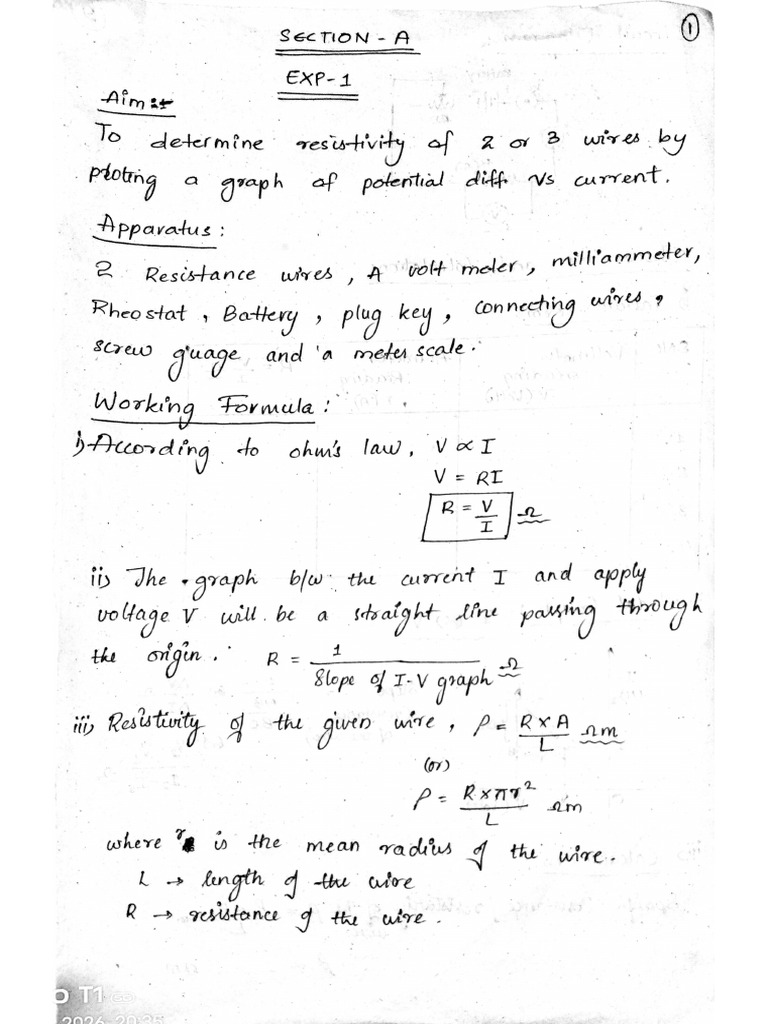 ①
SECTION - A
EXP-1
Aim :-
To determine resistivity of 2 or 3 wires by
ploting a graph of potential diff vs current.
Apparatus :
2 Resistance wires, A volt meter, milliammeter,
Rheostat, Battery, plug key, connecting wires,
screw guage and a meter scale.
Working Formula :
i) According to ohm's law, V ∝ I
V = RI
R = V/I Ω
ii) The graph b/w the current I and apply
voltage V will be a straight line passing through
the origin. R = 1/Slope of I-V graph Ω
iii) Resistivity of the given wire, ρ = R×A/L Ωm
(or)
ρ = R×πr²/L Ωm
where r is the mean radius of the wire.
L → length of the wire
R → resistance of the wire.
T1
2026 20:35